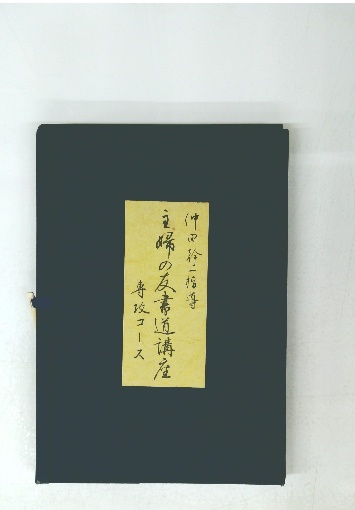 仲田幹一指導
主婦の友書道講座
専攻コース